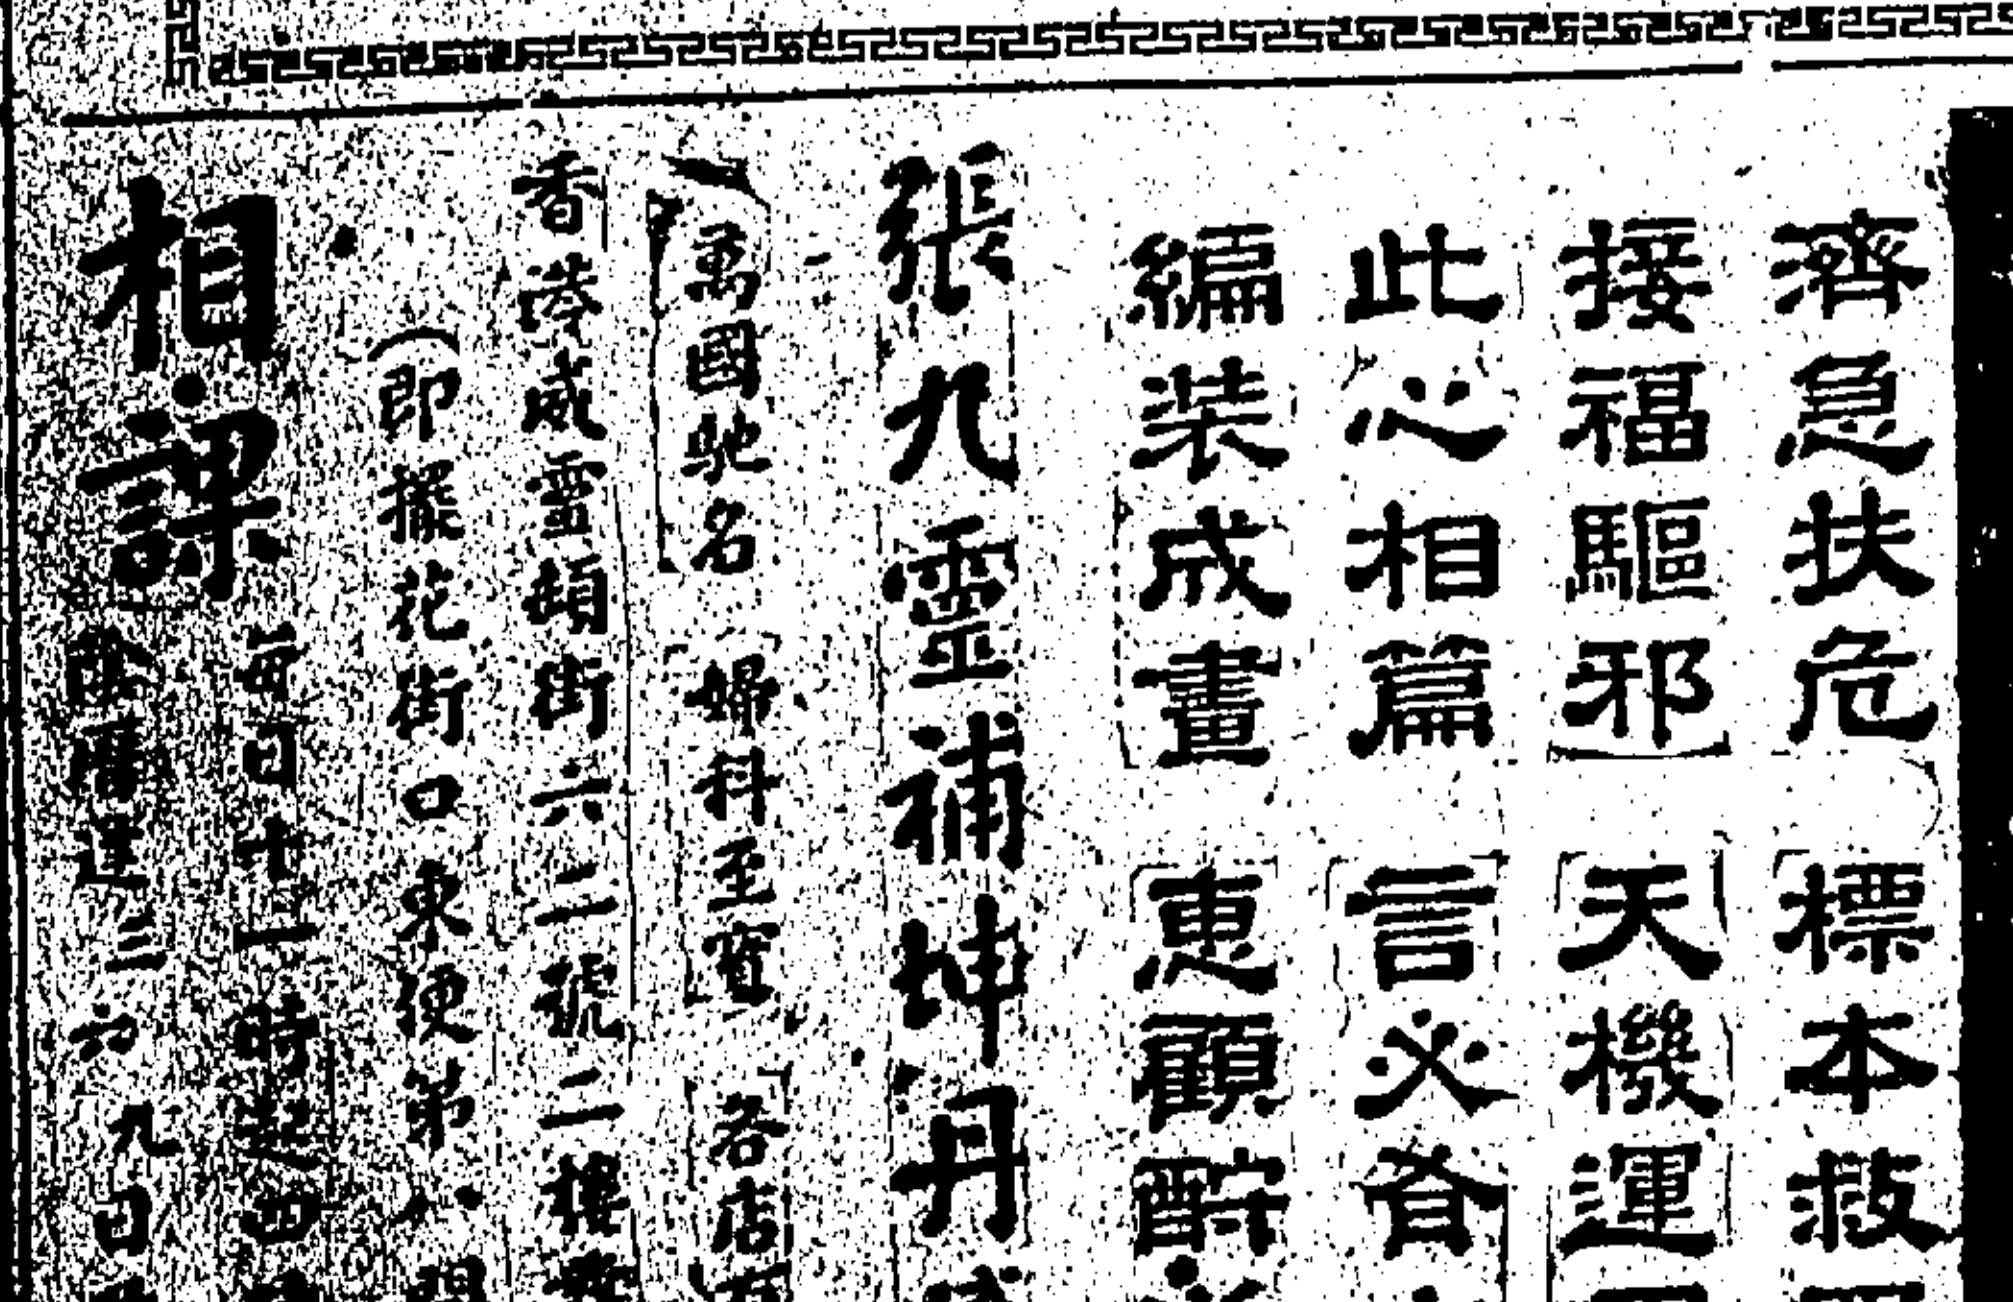 濟急扶危 標本救
接福驅邪 天機運
此心相篇 言必有
編裝成畫 惠顧酧
張九靈補坤丹
萬國馳名 婦科至寶 各店
香港威靈頓街六二號二樓
(即擺花街口東便第八間
相課
每日十一時起四
陰曆逢三六九日